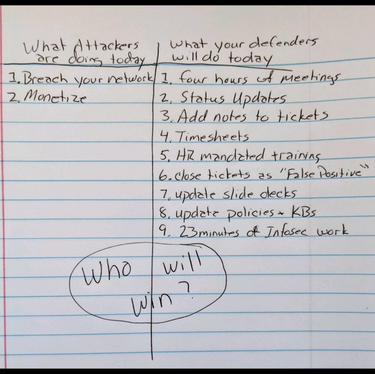 What Attackers
are doing today
1. Breach your network
2. Monetize
What your defenders
will do today
1. four hours of meetings
2. Status Updates
3. Add notes to tickets
4. Timesheets
5. HR mandated training
6. close tickets as "False Positive"
7. update slide decks
8. update policies ~ KBs
9. 23 minutes of Infosec work
Who will
win?